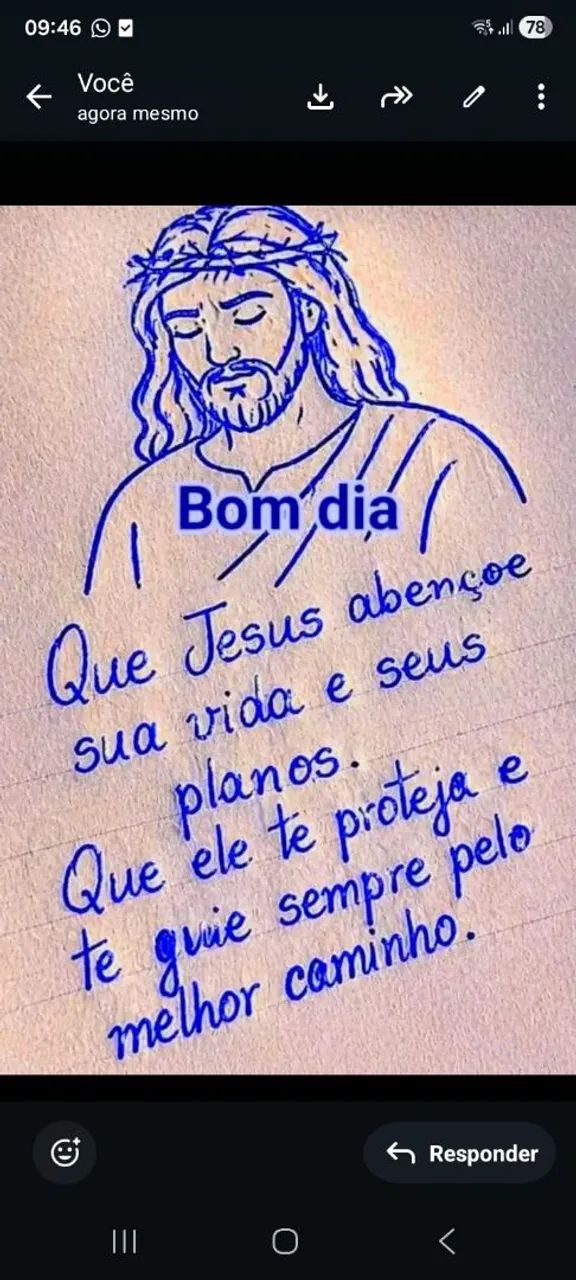 09:46
78
Você
agora mesmo
Bom dia
Que Jesus abençoe
sua vida e seus
planos.
Que ele te proteja e
te guie sempre pelo
melhor caminho.
Responder